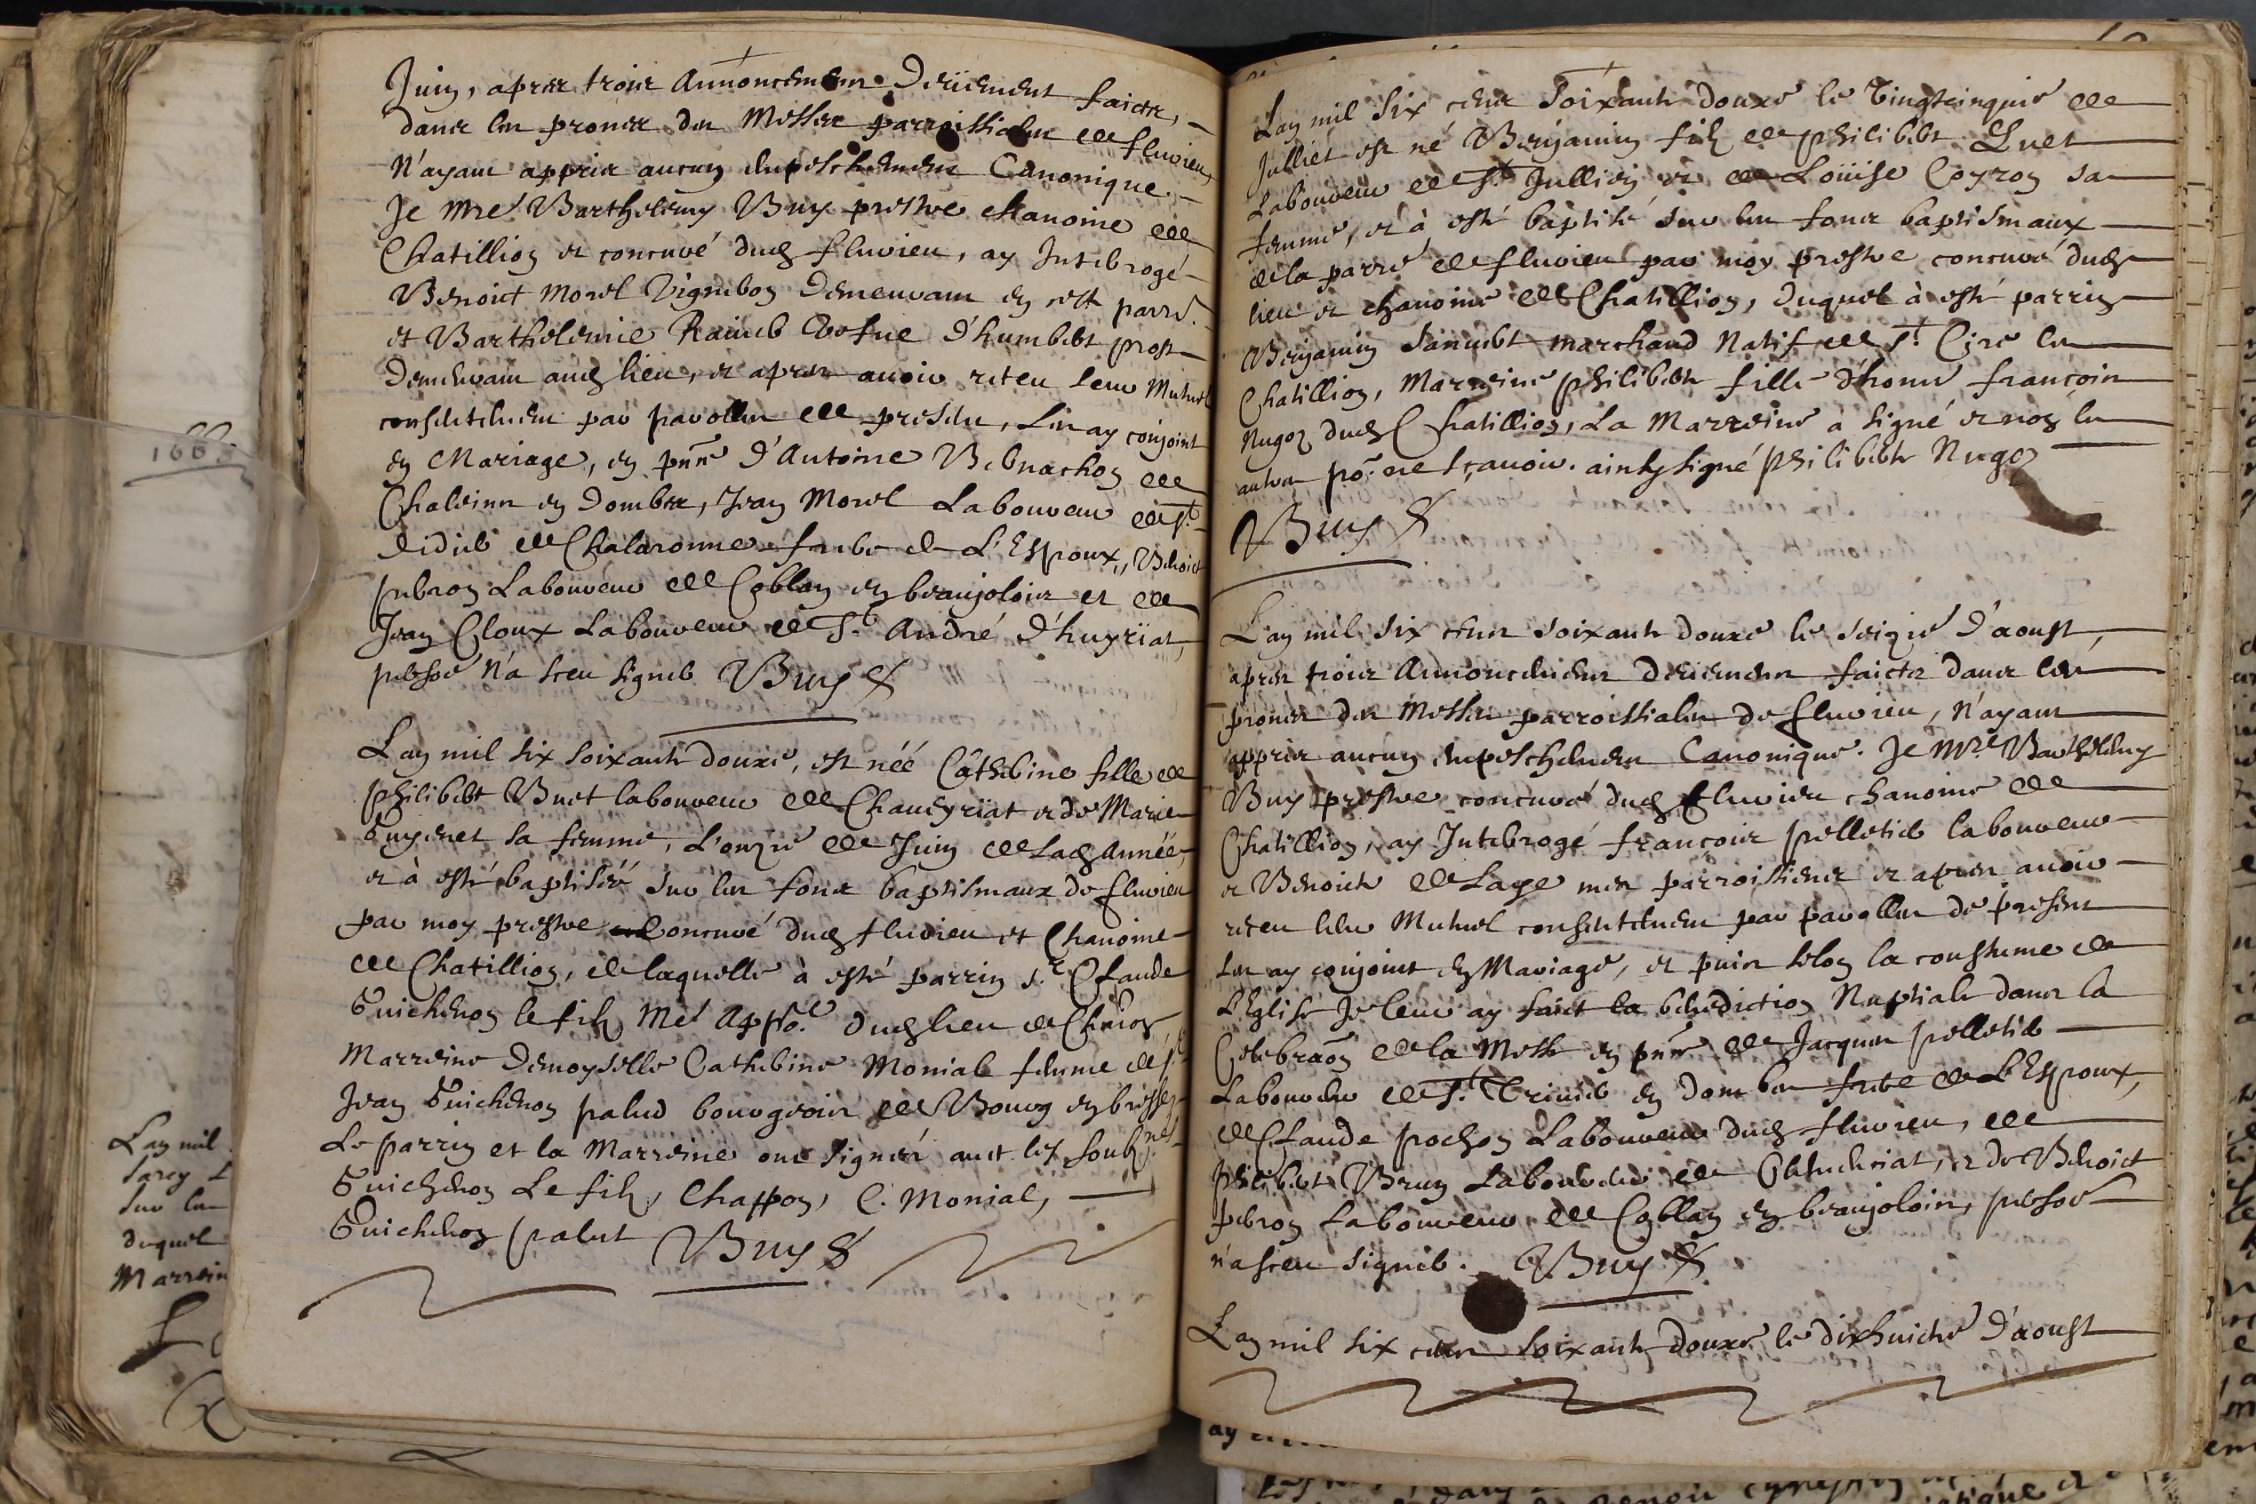 1668
Lan mil
Sur les
duquel
Marrein
Juin, apres trois Annoncemens deüement faictes,
dans les prones des Messes parroissiales de fluvieu
N'ayant appris aucun empeschement Canonique.
Je Mre Barthelemy Buy prestre chanoine de
Chatillion et concuré dud fluvieu, ay Interbrogé
Benoict Morel Vigneron demeurant en cest parre.
et Barthelemie Raineb vefue d'humbert prost
demeurant aud lieu, et apres auoir receu leur Mutuel
consentement par parolles de presens, Les ay conjoint
en Mariage, en pnce d'Antoine Bernachon de
Chaleins en Dombes, Jean Morel Laboureur de St
didier de Chalaronne frere de L'Espoux, Benoict
perron Laboureur de Coblan en beaujolois et de
Jean Cloux Laboureur de St. André d'huyriat,
persoe n'a sceu signer Buy
Lan mil six soixante douze, est néé Câtherine fille de
philibert Buet laboureur de Chaneyriat et de Marie
Guyenet sa femme, L'onze de Juin de Lad Année,
et à esté baptiséé sur les fons baptismaux de fluvieu
par moy prestre Concuré dud fluvieu et Chanoine
de Chatillion, de laquelle à esté parrin sr Claude
Guichenon le fils Me Appore. dud lieu de Chaon
Marreine Demoyselle Catherine Monial femme de sr
Jean Guichenon palud bourgeois de Bourg en bresse,
Le parrin et la Marreine ont signés auec les soubsnés
Guichenon Le fils, Chappon, C. Monial,
Guichenon palut Buy
Lan mil six cens Soixante douze le Vingtcinquie de
Julliet est né Benjamin fils de philibert Guet
Laboureur de St Jullien et de Loüise Coyron sa
femme, et à esté baptisé sur les fons baptismaux
de la parre de fluvieu par moy prestre concuré dud
lieu et chanoine de Chatillion, duquel à esté parrin
Benjamin Janvert marchand Natif de St. Cire les
Chatillion, Marreine philiberte fille d'hone françois
Nugoz dud Chatillion, La Marreine à signé et non les
autres po: ne sçauoir. ainsy signé philiberte Nugoz
Buy
Lan mil six cens soixante douze le seizie d'aoust,
apres trois Annoncemens deuement faictes dans les
prones des Messes parroissiales de fluvieu, n'ayant
appris aucun empeschement Canonique. Je Mre Barthelemy
Buy prestre concuré dud fluvieu chanoine de
Chatillion, ay Interbrogé francois pelletier laboureur
et Benoiste de Laye mes parroissiens et apres auoir
receu leur Mutuel consentement par parolles de presens
Les ay conjoint en Mariage, et puis selon la coustume de
L'Eglise Je leur ay faict la benediction Nuptiale dans la
Celebraon de la Messe en pnce de Jacques pelletier
Laboureur de St. Trivier en Dombes frere de L'Espoux,
de Claude pochon Laboureur dud fluvieu, de
philibert Brun Laboureur de Chaneiriat, et de Benoict
perron Laboureur de Coblan en beaujolois, persoe
n'a sceu signer. Buy
Lan mil six cens soixante douze le dixhuictie d'aoust